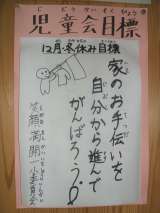 児童会目標
じどうかいもくひょう
12月・冬休み目標
家のお手伝いを
自分から進んで
がんばろう!
笑顔満開